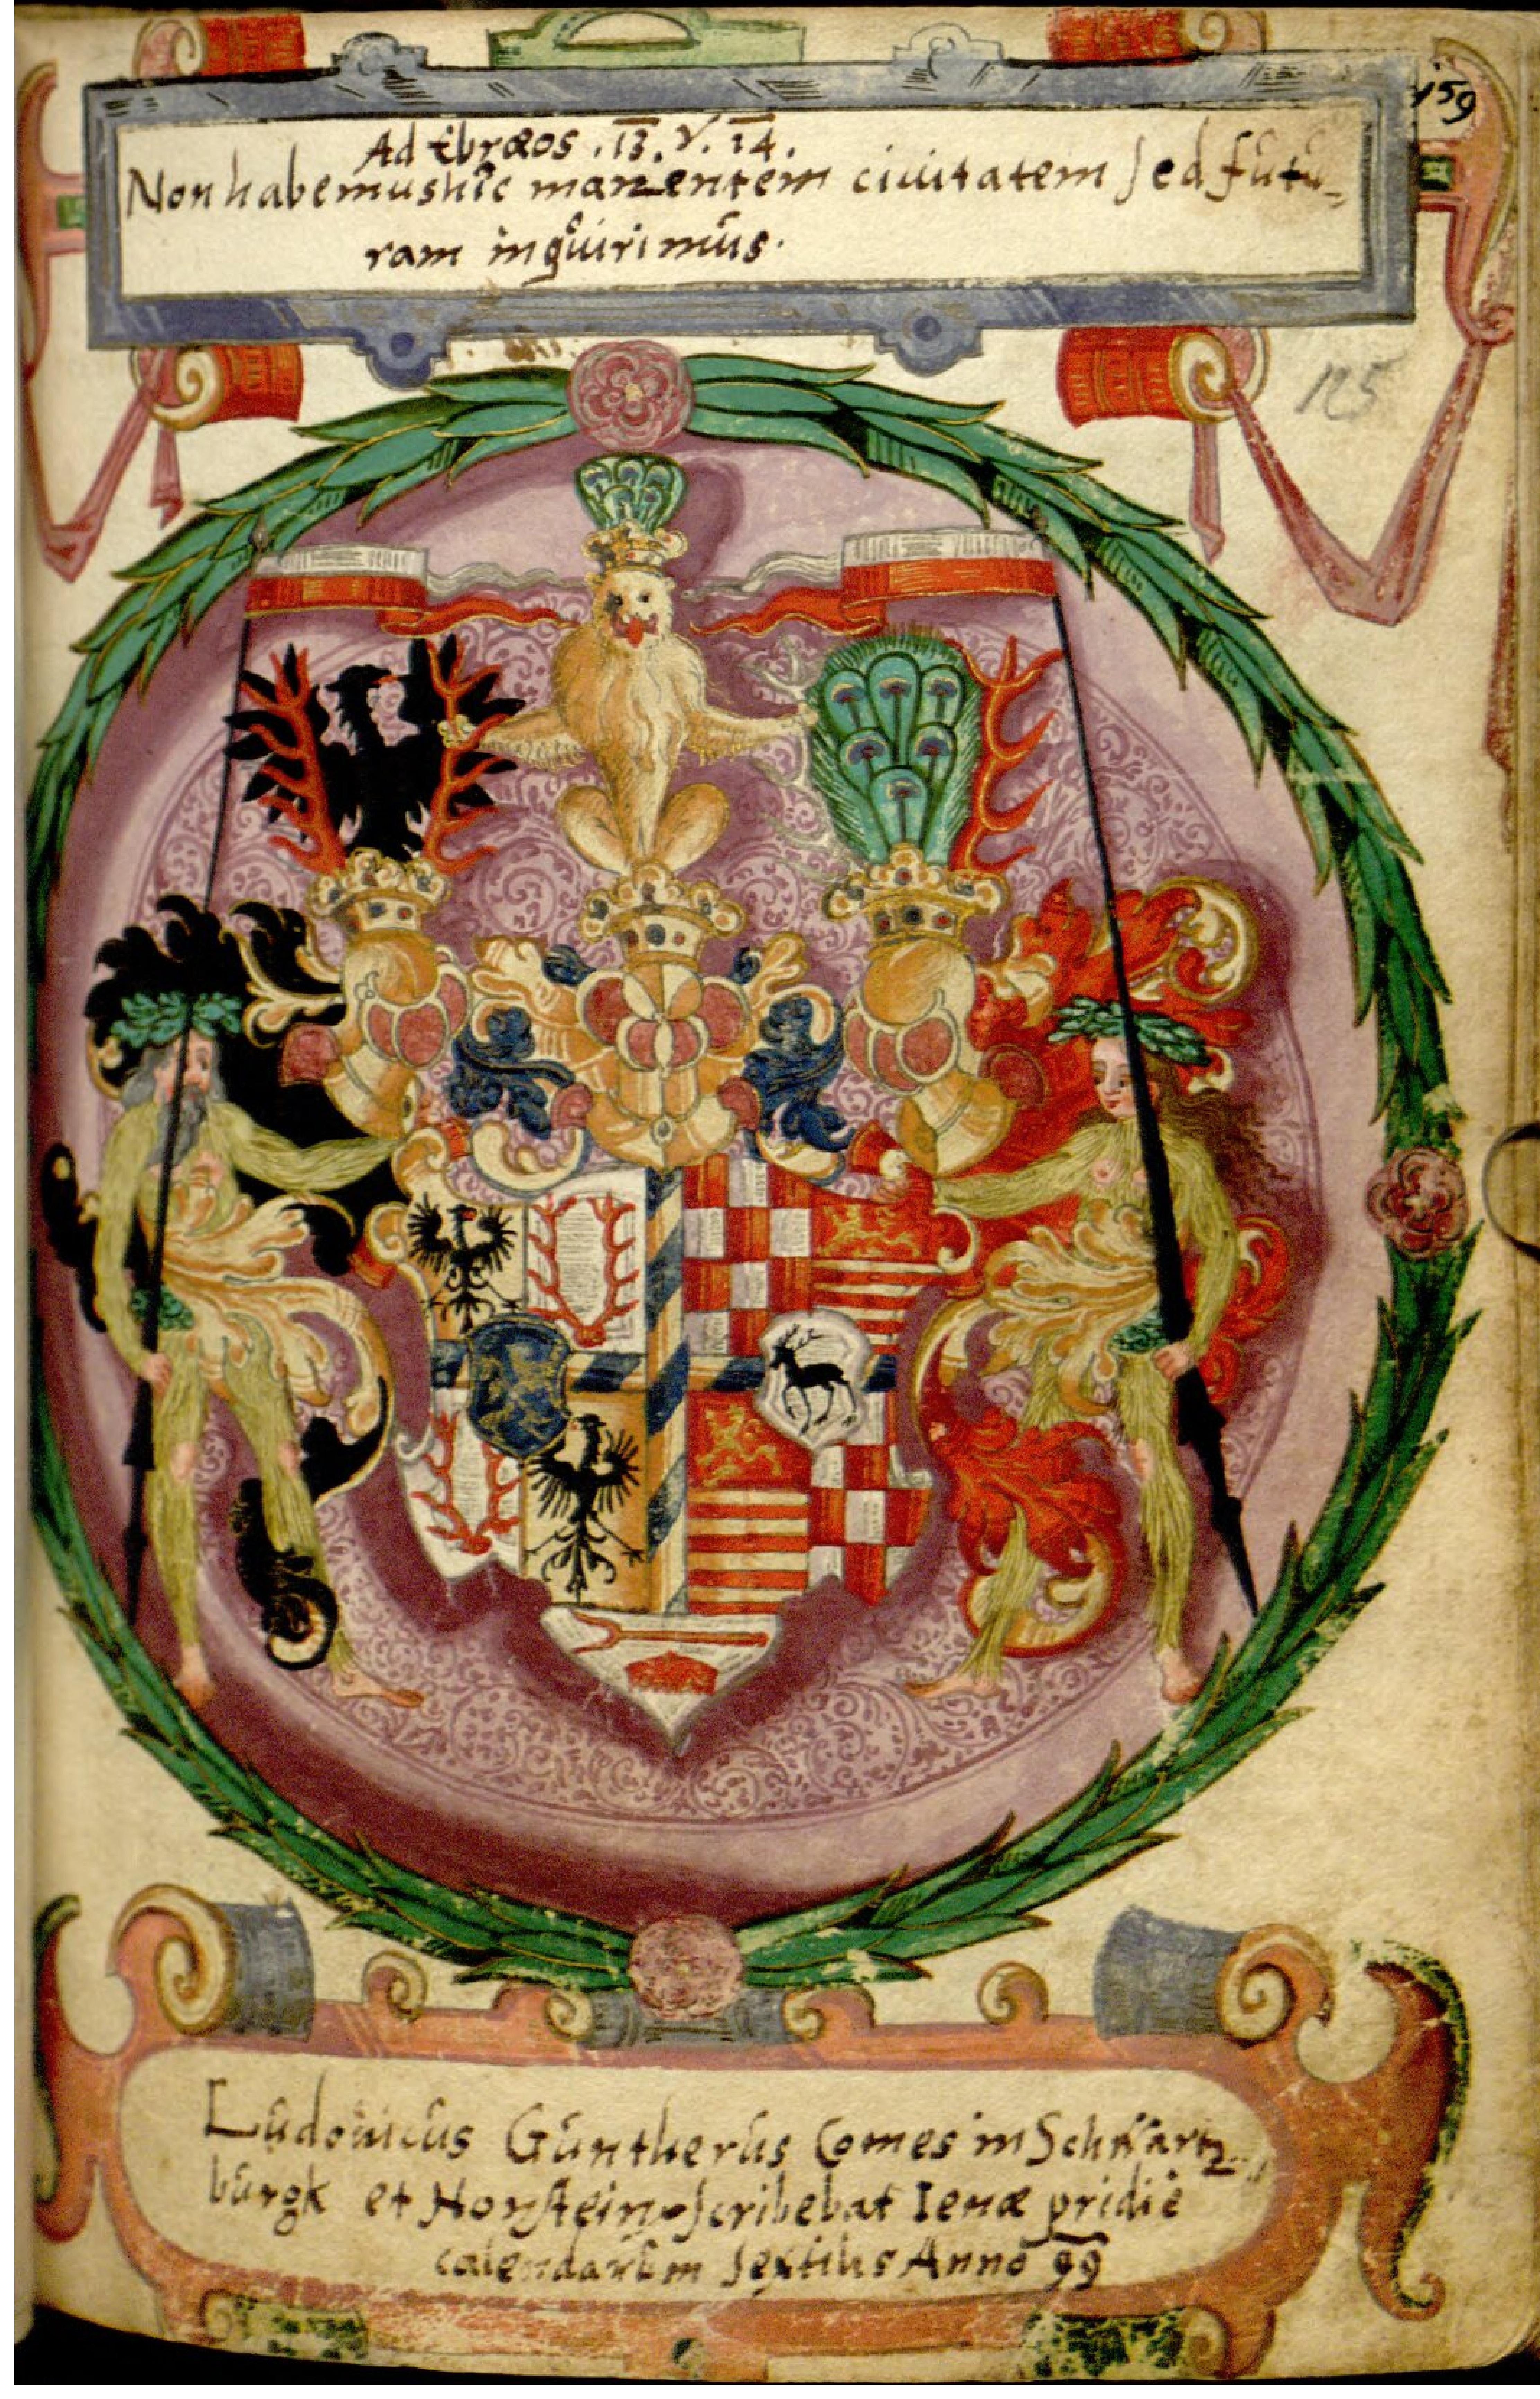 159
Ad Ebræos . 13. V. 14.
Non habemus hîc manentem ciuitatem sed futu-
ram inquirimus.
125
Ludouicus Guntherus Comes in Schwartz-
burgk et Honstein scribebat Ienæ pridie
calendarum sextilis Anno 99